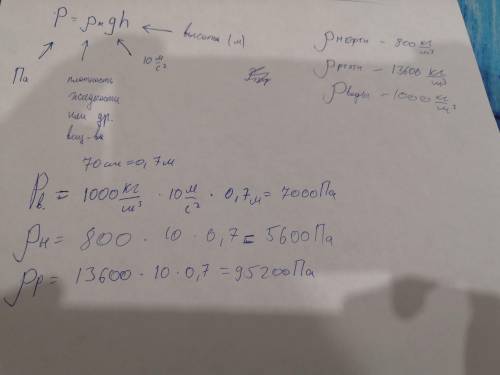 P = ρж gh ← высота (м)
Па
плотность
жидкости
или др.
вещ-ва
10 м/с²
ρнефти - 800 кг/м³
ρртути - 13600 кг/м³
ρводы - 1000 кг/м³
70 см = 0,7 м
Pв = 1000 кг/м³ · 10 м/с² · 0,7 м = 7000 Па
ρн = 800 · 10 · 0,7 = 5600 Па
ρр = 13600 · 10 · 0,7 = 95200 Па